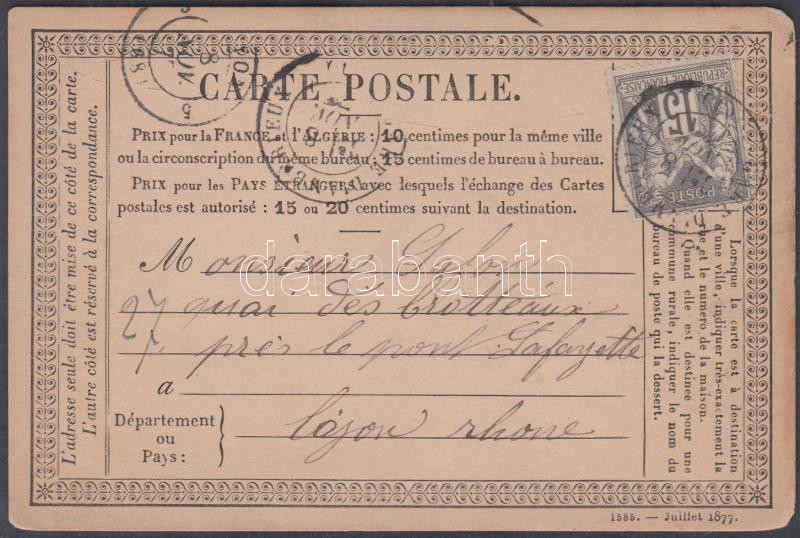 CARTE POSTALE.
PRIX pour la FRANCE et l'ALGÉRIE : 10 centimes pour la même ville
ou la circonscription du même bureau : 15 centimes de bureau à bureau.
PRIX pour les PAYS ÉTRANGERS avec lesquels l'échange des Cartes
postales est autorisé : 15 ou 20 centimes suivant la destination.
Monsieur
27 quai des Brotteaux
près le pont Lafayette
a
Département
ou
Pays :
Lyon rhone
L'adresse seule doit être mise de ce côté de la carte.
L'autre côté est réservé à la correspondance.
Lorsque la carte est à destination
d'une ville, indiquer très-exactement la
rue et le numéro de la maison.
Quand elle est destinée pour une
commune rurale, indiquer le nom du
bureau de poste qui la dessert.
RÉPUBLIQUE FRANÇAISE
15
POSTE
darabanth
1585. — Juillet 1877.